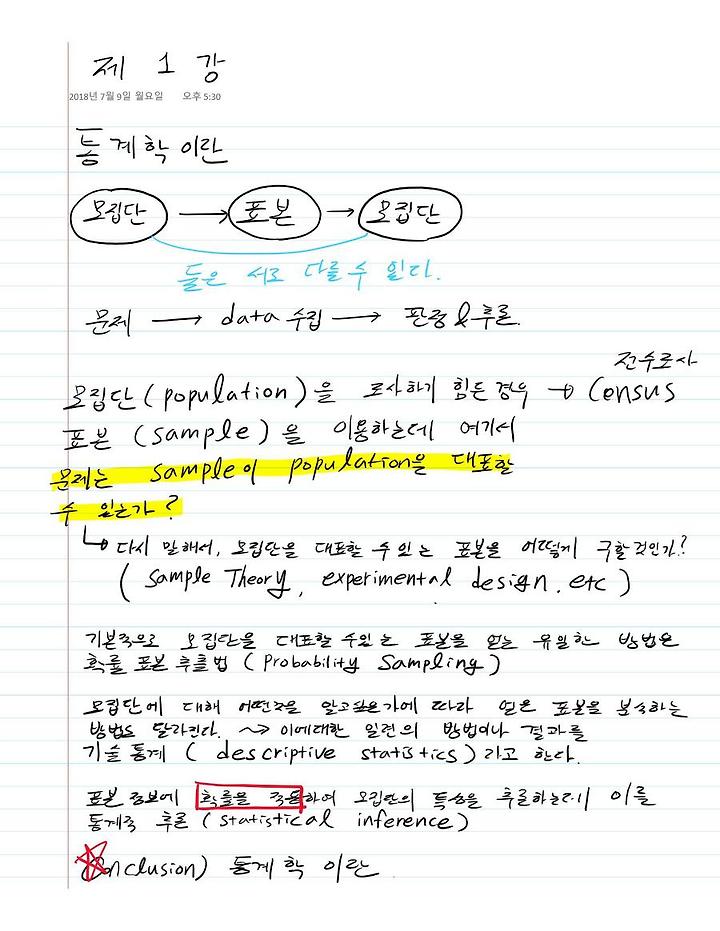 제 1 강
2018년 7월 9일 월요일 오후 5:30
통계학 이란
모집단 → 표본 → 모집단
둘은 서로 다를 수 있다.
문제 → data 수집 → 판정 & 추론.
전수조사
모집단 (population) 을 조사하기 힘든 경우 → Census
표본 (sample) 을 이용하는데 여기서
문제는 sample이 population을 대표할
수 있는가?
↳ 다시 말해서, 모집단을 대표할 수 있는 표본을 어떻게 구할것인가?
( sample Theory, experimental design. etc )
기본적으로 모집단을 대표할 수있는 표본을 얻는 유일한 방법은
확률 표본 추출법 ( Probability Sampling )
모집단에 대해 어떤것을 알고싶은가에 따라 얻은 표본을 분석하는
방법도 달라진다. ~> 이에대한 일련의 방법이나 결과를
기술 통계 ( descriptive statistics ) 라고 한다.
표본 정보에 확률을 적용하여 모집단의 특성을 추론하는데 이를
통계적 추론 ( statistical inference )
(Conclusion) 통계학 이란